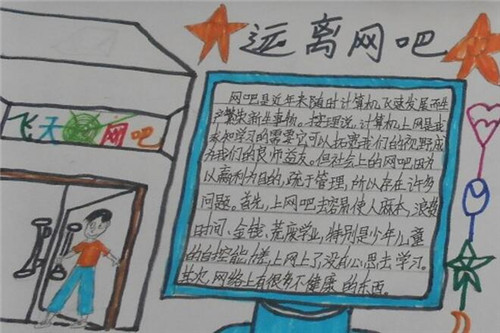 远离网吧
飞天网吧
网吧是近年来随时计算机飞速发展而生
产繁荣新生事物。按理说,计算机上网是我
求知学习的需要它可以拓宽我们的视野成
为我们的良师益友。但社会上的网吧因为
以赢利为目的,疏于管理,所以存在许多
问题。首先,上网吧容易使人麻木,浪费
时间、金钱、荒废学业,特别是少年儿童
的自控能力差,上网上了没有心思去学习。
其次,网络上有很多不健康的东西。